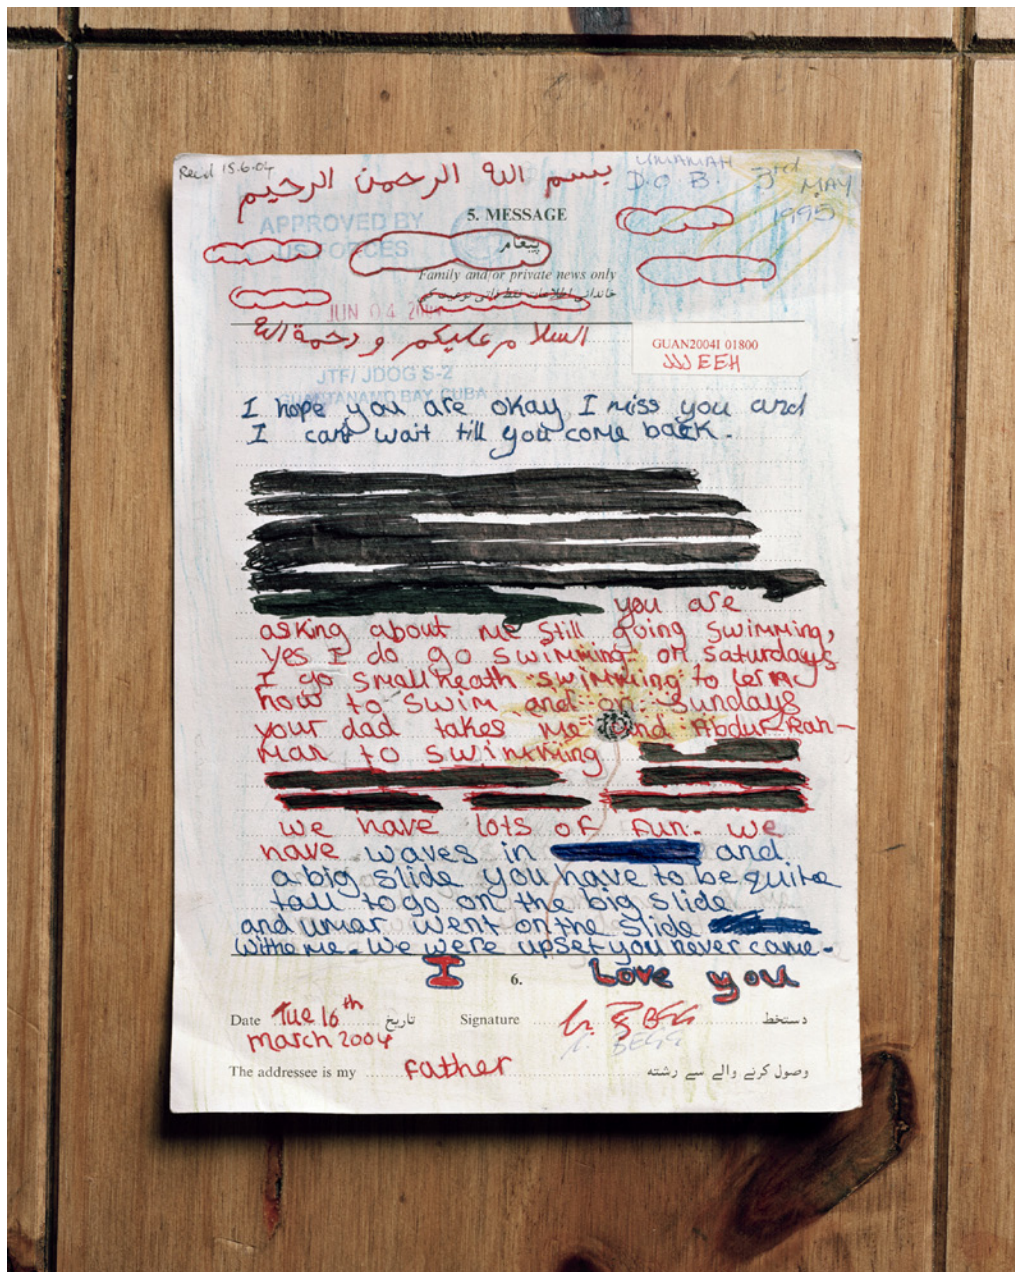 Recd 15.6.04
بسم الله الرحمن الرحيم
UMAMAH
D.O.B. 3rd MAY
1995
5. MESSAGE
APPROVED BY
US FORCES
پیغام
Family and/or private news only
JUN 04 2004
السلام عليكم ورحمة الله
GUAN2004I 01800
JJJ EEH
JTF/ JDOG S-2
GUANTANAMO BAY, CUBA
I hope you are okay, I miss you and
I cant wait till you come back.
you are
asking about me still going swimming,
yes I do go swimming on saturdays
I go small heath swimming to lern
how to swim and on sundays
your dad takes me and Abdur-Rah-
man to swimming
we have lots of fun. we
have waves in and
a big slide you have to be quite
tall to go on the big slide
and umar went on the slide
withe me. we were upset you never came.
I Love you
6.
Date Tue 16th تاریخ Signature U. BEGG دستخط
March 2004 U. BEGG
The addressee is my father وصول کرنے والے سے رشتہ